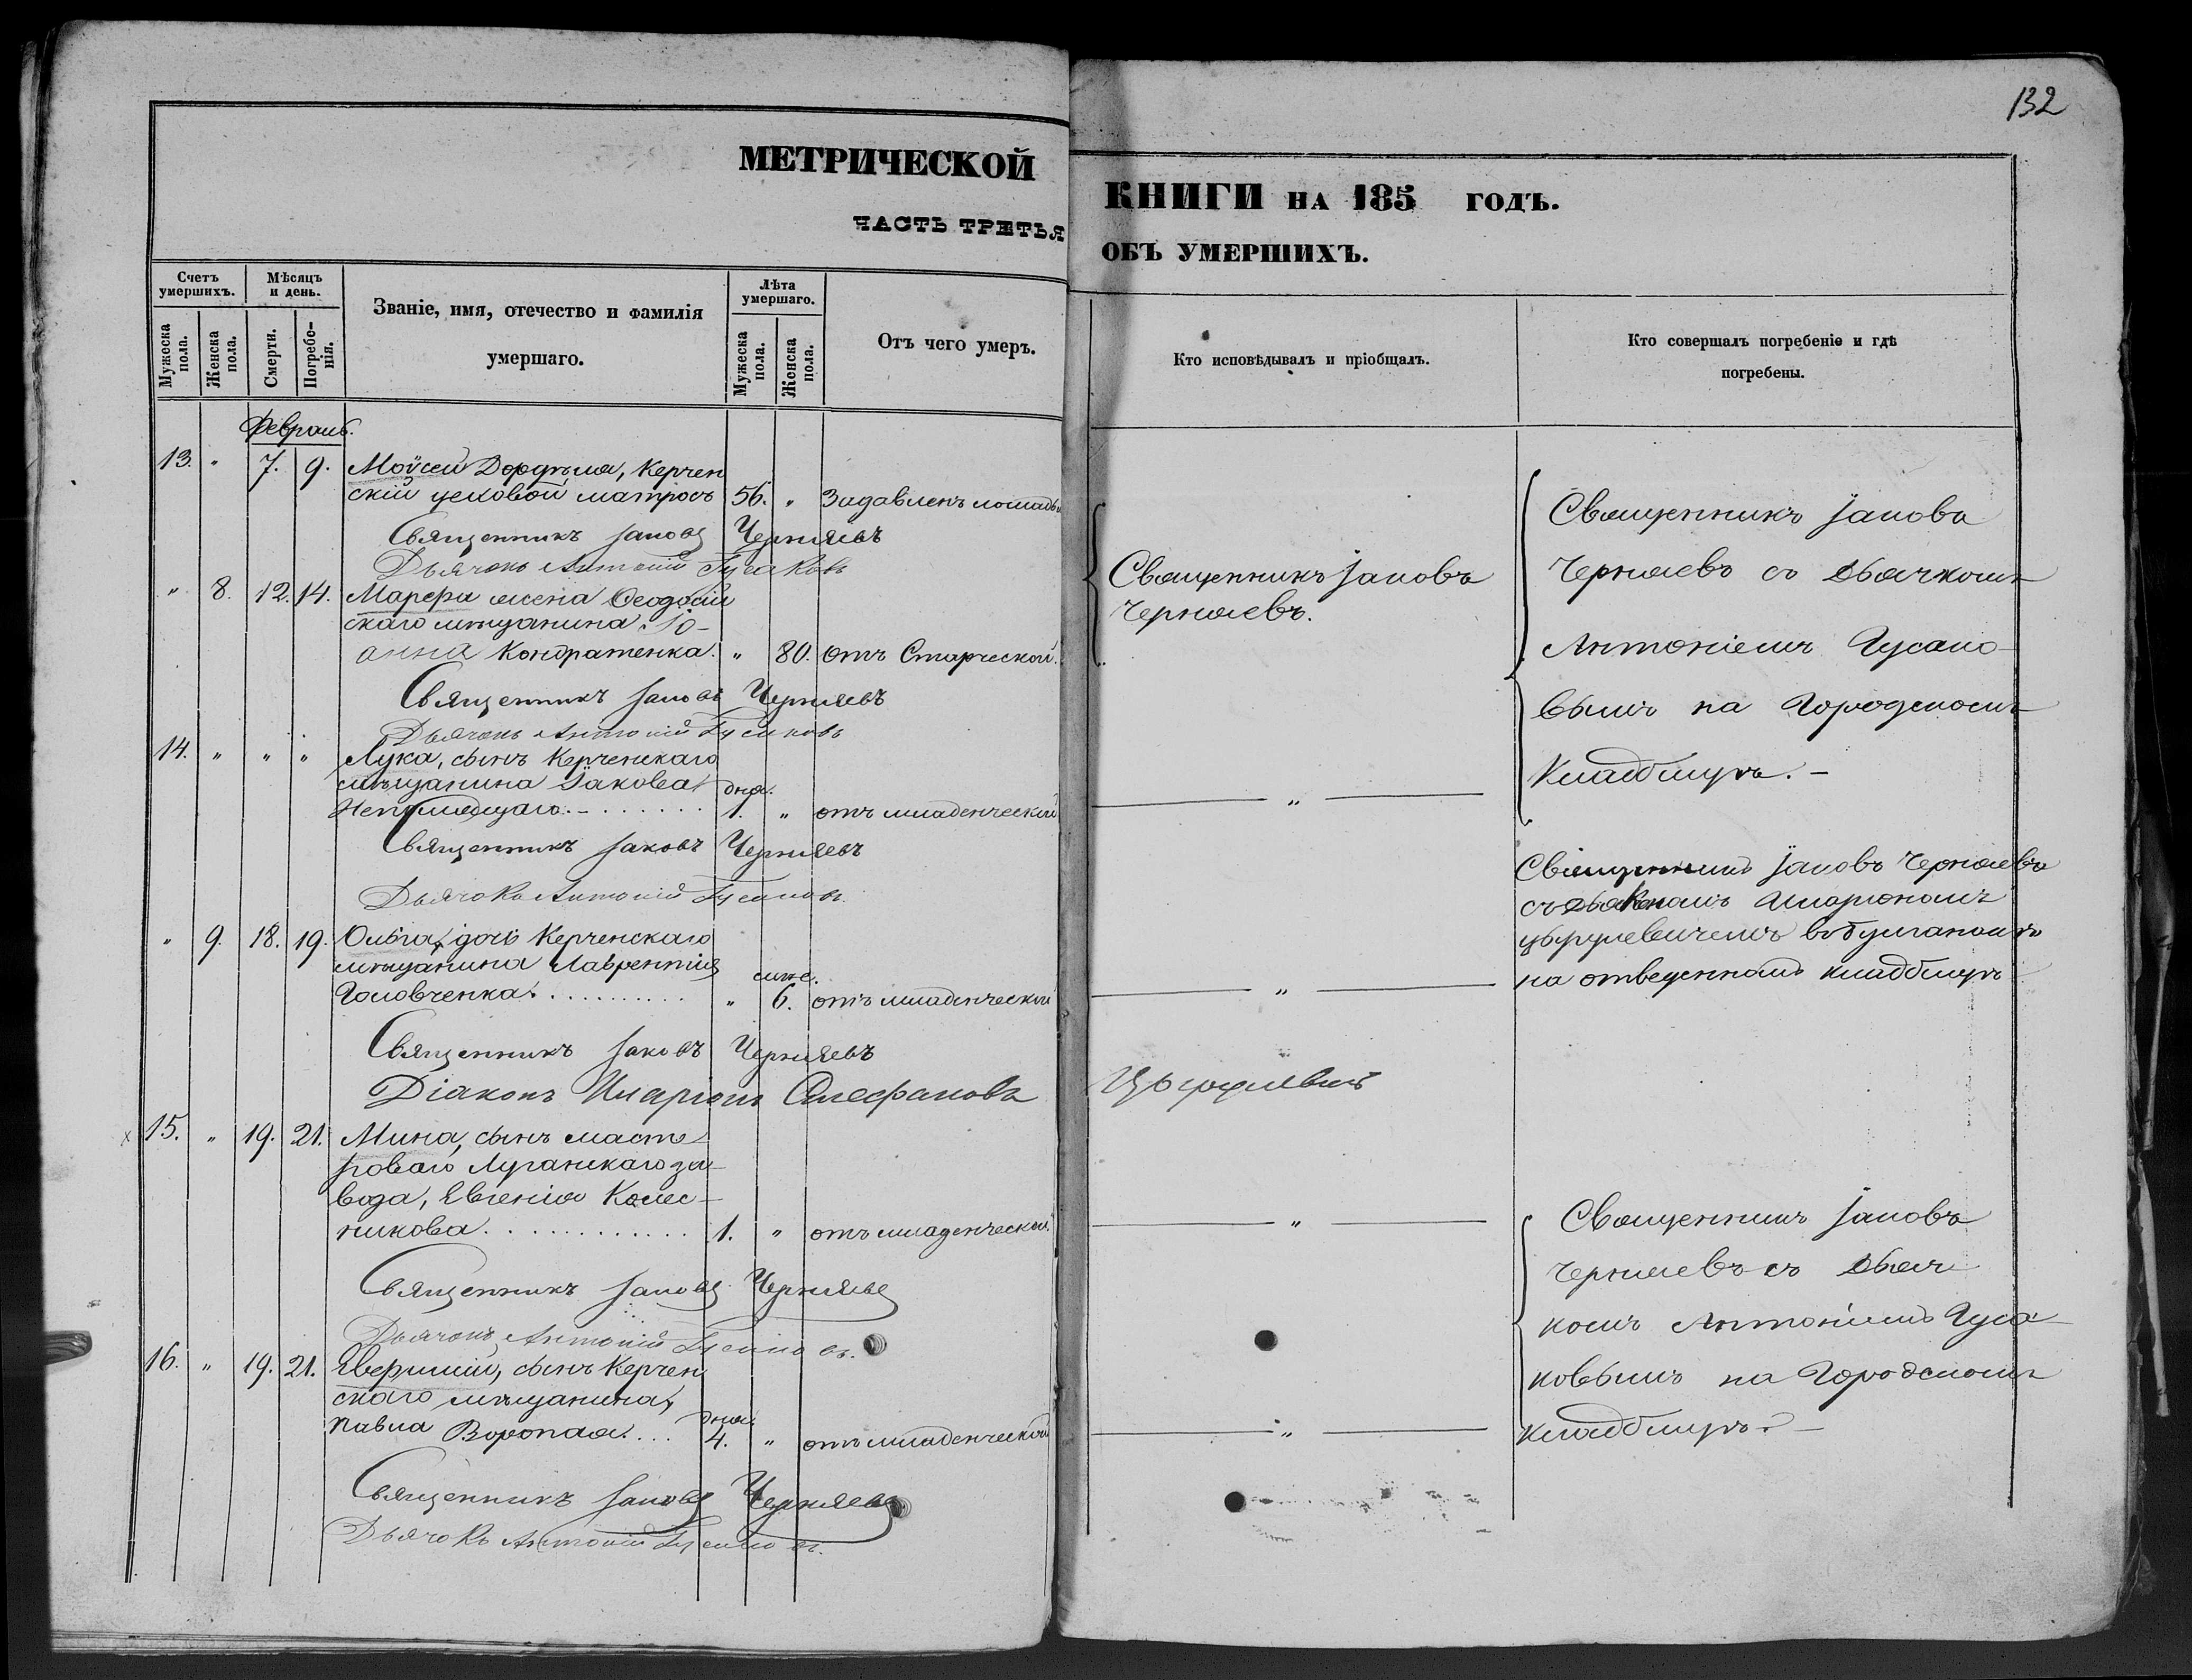 132
МЕТРИЧЕСКОЙ
ЧАСТЬ ТРЕТЬЯ
КНИГИ НА 185 ГОДЪ.
ОБЪ УМЕРШИХЪ.
Счетъ умершихъ.
Мѣсяцъ и день.
Званіе, имя, отечество и фамилія умершаго.
Лѣта умершаго.
Отъ чего умеръ.
Мужеска пола.
Женска пола.
Смерти.
Погребенія.
Мужеска пола.
Женска пола.
Кто исповѣдывалъ и пріобщалъ.
Кто совершалъ погребеніе и гдѣ погребены.
Февраль.
13. " 7. 9. Моѵсей, Керчен
скій цеховой матросъ 56. " Задавленъ лошадью
Священникъ Іаковъ Черняевъ
Дьячокъ Антоній Гусаковъ
" 8. 12. 14. Марфа жена Ѳеодосій
скаго мѣщанина Іо-
анна Кондратенка. " 80. отъ Старческой.
Священникъ Іаковъ Черняевъ
Дьячокъ Антоній Гусаковъ
14. " " " Лука, сынъ Керченскаго
мѣщанина Іакова дня.
1. " отъ младенческой
Священникъ Іаковъ Черняевъ
Дьячокъ Антоній Гусаковъ.
" 9. 18. 19. Ольга, дочь Керченскаго
мѣщанина Лаврентія
Головченка. " 6. отъ младенческой
Священникъ Іаковъ Черняевъ
Діаконъ Иларіонъ
15. " 19. 21. Мина, сынъ масте-
роваго Луганскаго за-
вода, Евгенія Колес-
никова. 1. " отъ младенческой.
Священникъ Іаковъ Черняевъ
Дьячокъ Антоній Гусаковъ.
16. " 19. 21. сынъ Керчен
скаго мѣщанина
Павла Воропая. дня
4. " отъ младенческой
Священникъ Іаковъ Черняевъ
Дьячокъ Антоній Гусаковъ.
Священникъ Іаковъ
Черняевъ.
"
"
"
"
Священникъ Іаковъ
Черняевъ съ Дьячкомъ
Антоніемъ Гусако-
вымъ на Городскомъ
Кладбищѣ. –
Священникъ Іаковъ Черняевъ
съ Иларіономъ
на отведенномъ кладбищѣ
Священникъ Іаковъ
Черняевъ съ Дьяч
комъ Антоніемъ Гуса-
ковымъ на Городскомъ
кладбищѣ. –